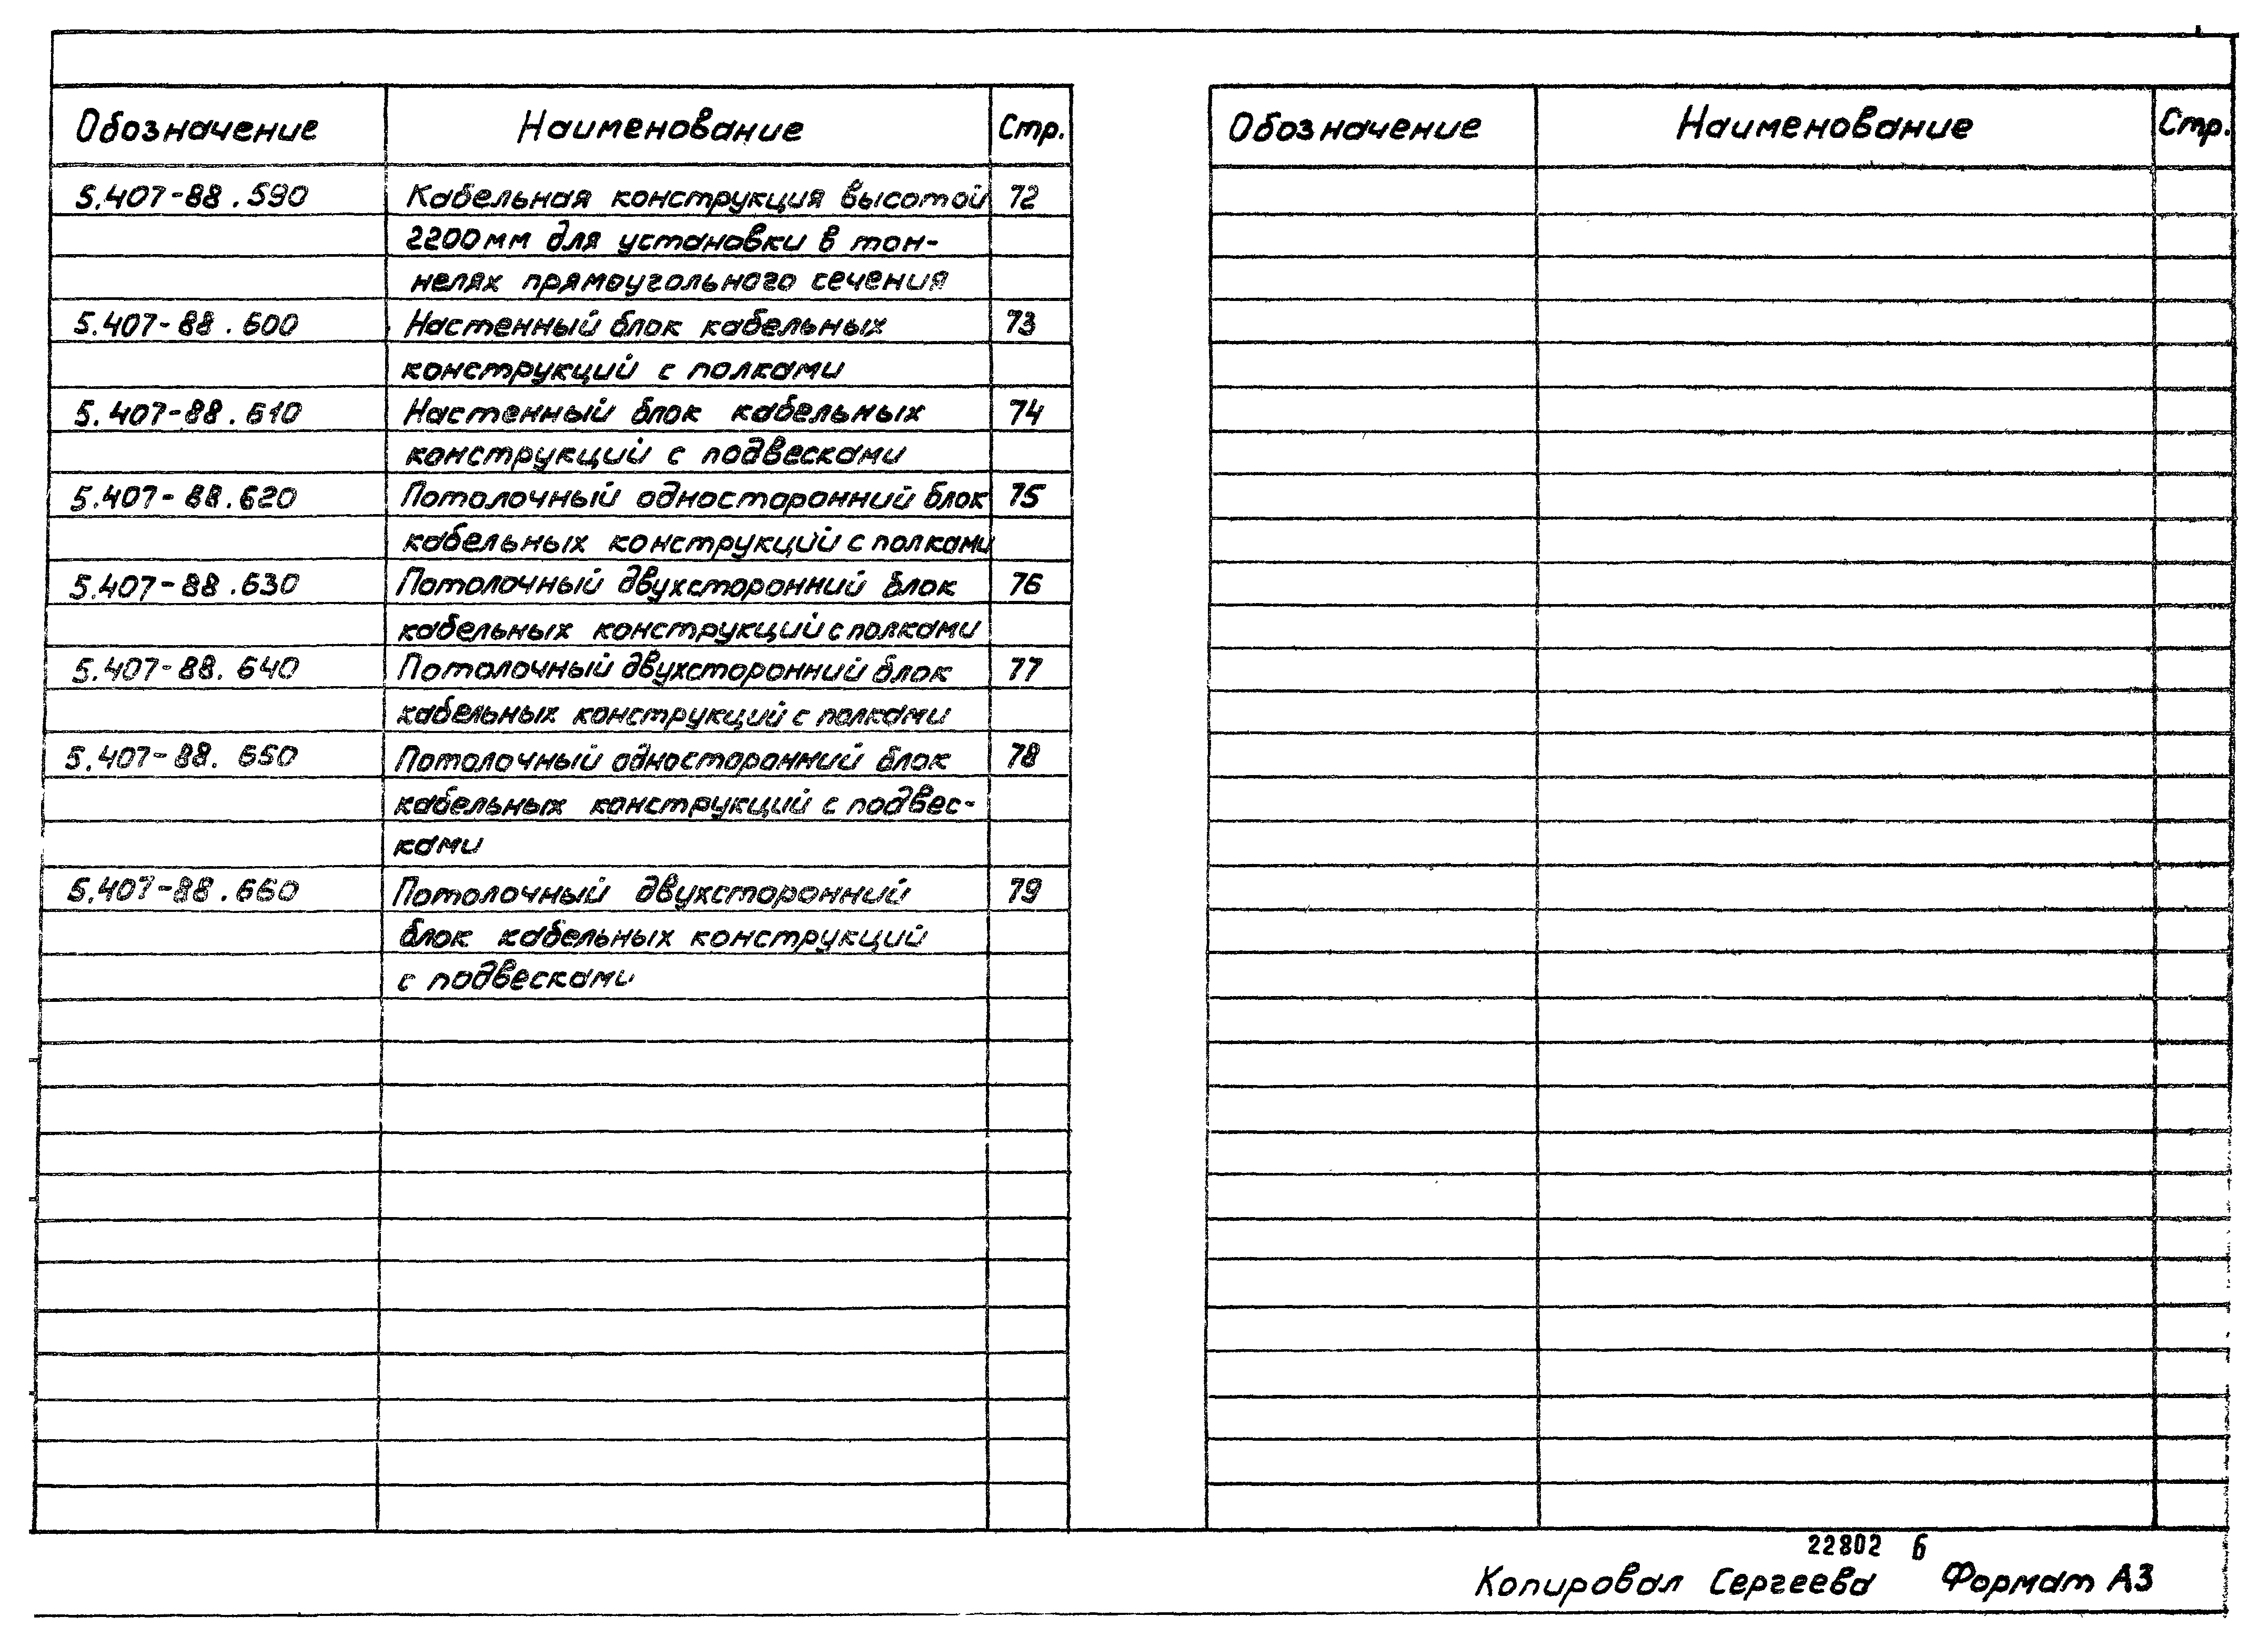 Обозначение Наименование Стр.
5.407-88.590 Кабельная конструкция высотой 72
2200мм для установки в тон-
нелях прямоугольного сечения
5.407-88.600 Настенный блок кабельных 73
конструкций с полками
5.407-88.610 Настенный блок кабельных 74
конструкций с подвесками
5.407-88.620 Потолочный односторонний блок 75
кабельных конструкций с полками
5.407-88.630 Потолочный двухсторонний блок 76
кабельных конструкций с полками
5.407-88.640 Потолочный двухсторонний блок 77
кабельных конструкций с полками
5.407-88.650 Потолочный односторонний блок 78
кабельных конструкций с подвес-
ками
5.407-88.660 Потолочный двухсторонний 79
блок кабельных конструкций
с подвесками
Обозначение Наименование Стр.
22802 6
Копировал Сергеева Формат А3